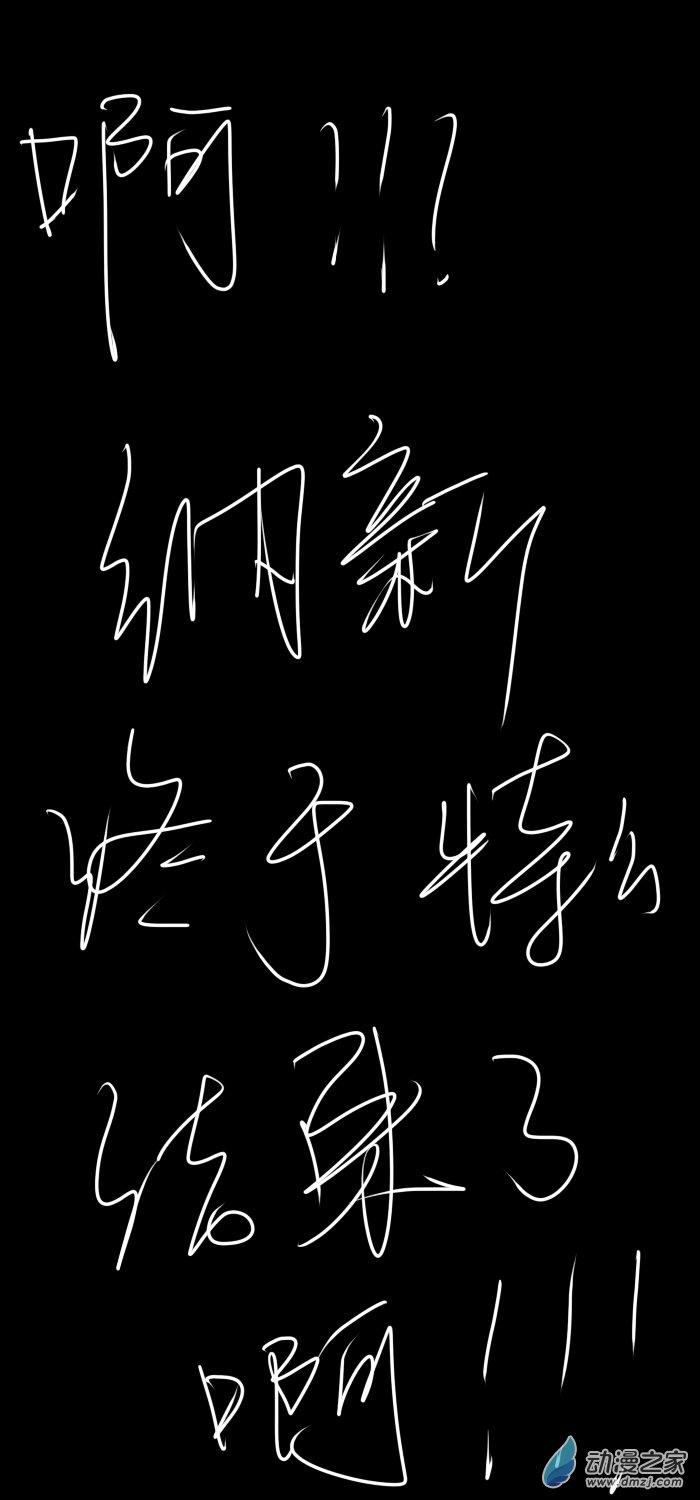 啊!!!
纳新
终于特么
结束了
啊!!!
动漫之家
www.dmzj.com